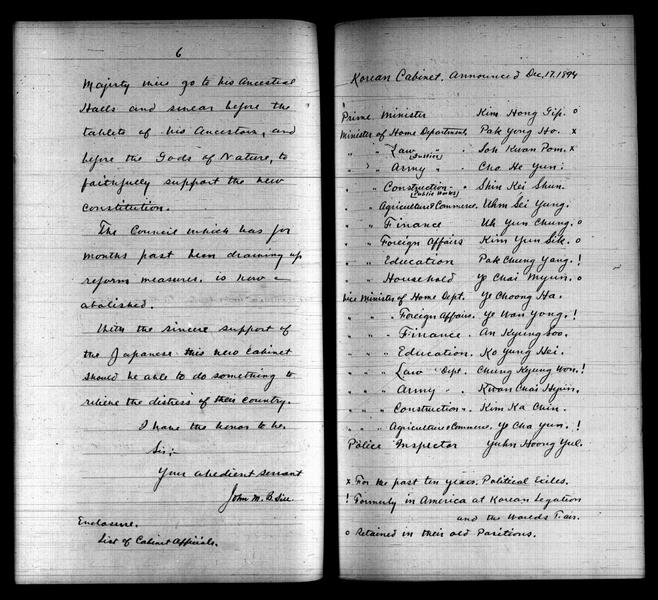 6
Majesty will go to his Ancestral
Halls and swear before the
tablets of his Ancestors, and
before the Gods of Nature, to
faithfully support the new
constitution.
The Council which has for
months past been drawing up
reform measures, is now
abolished.
With the sincere support of
the Japanese this new Cabinet
should be able to do something to
relieve the distress of their country.
I have the honor to be,
Sir:-
Your obedient servant
John M. B. Sill
Enclosure.
List of Cabinet Officials.
Korean Cabinet. Announced Dec. 17. 1894
Prime Minister Kim Hong Jip. o
Minister of Home Department, Pak Yong Ho. x
" " Law " Soh Kwan Pom. x
(Justice)
" " Army " Cho He Yun.
" " Construction " Shin Kei Shun.
(Public Works)
" " Agriculture & Commerce. Uhm Sei Yung.
" " Finance Uh Yun Chung. o
" " Foreign Affairs Kim Yun Sik. o
" " Education Pak Chung Yang. !
" " Household Ye Chai Myun. o
Vice Minister of Home Dept. Ye Choong Ha.
" " " Foreign Affairs. Ye Wan Yong. !
" " " Finance. An Kyung Soo.
" " " Education. Ko Yung Hei.
" " " Law " Dept. Chung Kyung Won. !
" " " Army " Kwan Chai Hyun.
" " " Construction ". Kim Ka Chin.
" " " Agriculture & Commerce. Ye Cha Yun. !
Police Inspector Yuhn Hoong Yul.
x For the past ten years, Political Exiles.
! Formerly in America at Korean Legation
and the Worlds Fair.
o Retained in their old Positions.